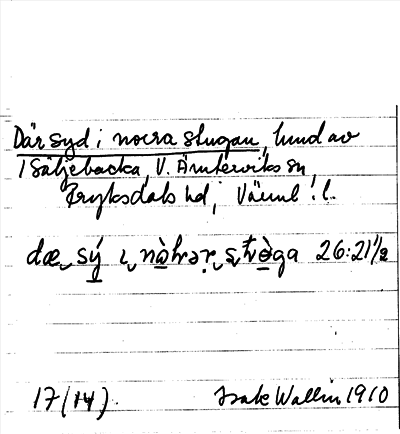 Där syd i norra stugan, hmd av
i Säljebacka, V. Ämterviks sn,
Fryksdals hd, Värml. l.
26:21½
17 (14) Isak Wallin 1910